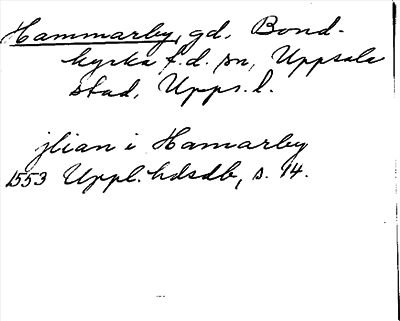 Hammarby, gd, Bond-
kyrka f.d. sn, Uppsala
stad, Upps.l.
jlian i Hamarby
1553 Uppl. hdsdb, s. 94.